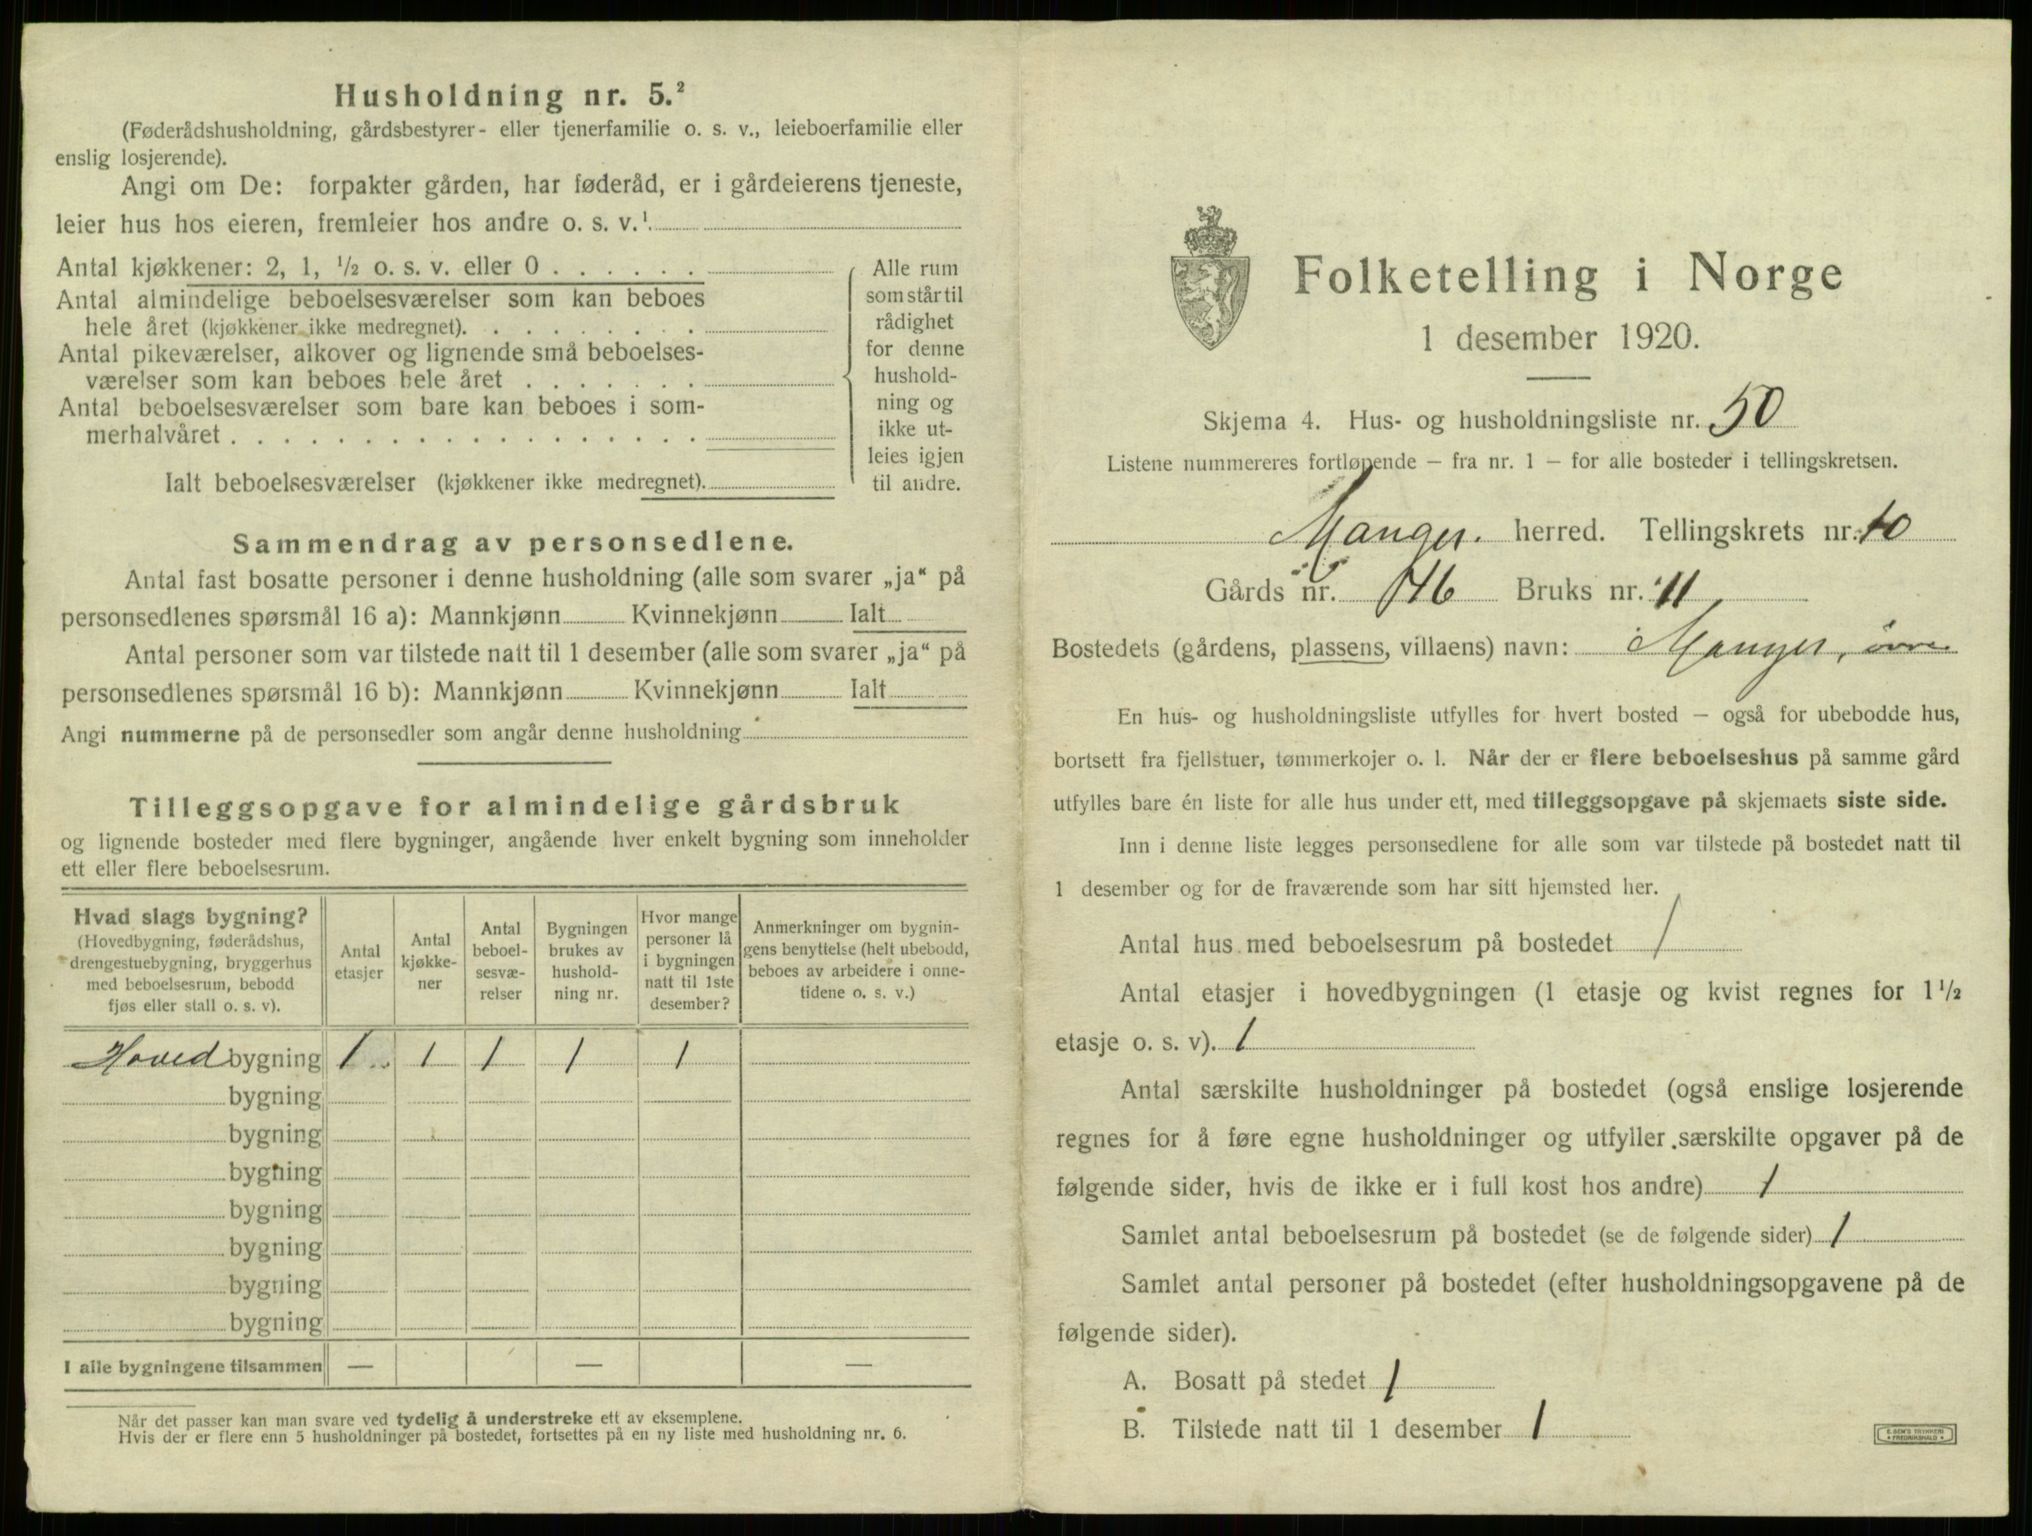 Husholdning nr. 5.²
(Føderådshusholdning, gårdsbestyrer- eller tjenerfamilie o. s. v., leieboerfamilie eller
enslig losjerende).
Angi om De: forpakter gården, har føderåd, er i gårdeierens tjeneste,
leier hus hos eieren, fremleier hos andre o. s. v.¹
Antal kjøkkener: 2, 1, ½ o. s. v. eller 0 . . . . . .
Antal almindelige beboelsesværelser som kan beboes
hele året (kjøkkener ikke medregnet). . . . . . . . .
Antal pikeværelser, alkover og lignende små beboelses-
værelser som kan beboes hele året . . . . . . .
Antal beboelsesværelser som bare kan beboes i som-
merhalvåret . . . . . . . . . . . . . . . . . .
Ialt beboelsesværelser (kjøkkener ikke medregnet).
Alle rum
som står til
rådighet
for denne
hushold-
ning og
ikke ut-
leies igjen
til andre.
Sammendrag av personsedlene.
Antal fast bosatte personer i denne husholdning (alle som svarer „ja“ på
personsedlenes spørsmål 16 a): Mannkjønn Kvinnekjønn Ialt
Antal personer som var tilstede natt til 1 desember (alle som svarer „ja“ på
personsedlenes spørsmål 16 b): Mannkjønn Kvinnekjønn Ialt
Angi nummerne på de personsedler som angår denne husholdning
Tilleggsopgave for almindelige gårdsbruk
og lignende bosteder med flere bygninger, angående hver enkelt bygning som inneholder
ett eller flere beboelsesrum.
Hvad slags bygning?
(Hovedbygning, føderådshus,
drengestuebygning, bryggerhus
med beboelsesrum, bebodd
fjøs eller stall o. s. v).
Antal
etasjer
Antal
kjøkke-
ner
Antal
beboel-
sesvæ-
relser
Bygningen
brukes av
hushold-
ning nr.
Hvor mange
personer lå
i bygningen
natt til 1ste
desember?
Anmerkninger om bygnin-
gens benyttelse (helt ubebodd,
beboes av arbeidere i onne-
tidene o. s. v.)
Hoved bygning 1 1 1 1 1
bygning
bygning
bygning
bygning
bygning
bygning
bygning
I alle bygningene tilsammen — — —
Når det passer kan man svare ved tydelig å understreke ett av eksemplene.
Hvis der er flere enn 5 husholdninger på bostedet, fortsettes på en ny liste med husholdning nr. 6.
Folketelling i Norge
1 desember 1920.
Skjema 4. Hus- og husholdningsliste nr. 50
Listene nummereres fortløpende – fra nr. 1 – for alle bosteder i tellingskretsen.
Manger. herred. Tellingskrets nr. 10
Gårds nr. 46 Bruks nr. 11
Bostedets (gårdens, plassens, villaens) navn: Manger, øvre
En hus- og husholdningsliste utfylles for hvert bosted – også for ubebodde hus,
bortsett fra fjellstuer, tømmerkojer o. l. Når der er flere beboelseshus på samme gård
utfylles bare én liste for alle hus under ett, med tilleggsopgave på skjemaets siste side.
Inn i denne liste legges personsedlene for alle som var tilstede på bostedet natt til
1 desember og for de fraværende som har sitt hjemsted her.
Antal hus med beboelsesrum på bostedet 1
Antal etasjer i hovedbygningen (1 etasje og kvist regnes for 1½
etasje o. s. v). 1
Antal særskilte husholdninger på bostedet (også enslige losjerende
regnes for å føre egne husholdninger og utfyller særskilte opgaver på de
følgende sider, hvis de ikke er i full kost hos andre) 1
Samlet antal beboelsesrum på bostedet (se de følgende sider) 1
Samlet antal personer på bostedet (efter husholdningsopgavene på de
følgende sider).
A. Bosatt på stedet 1
B. Tilstede natt til 1 desember 1
E. SEM'S TRYKKERI
FREDRIKSHALD